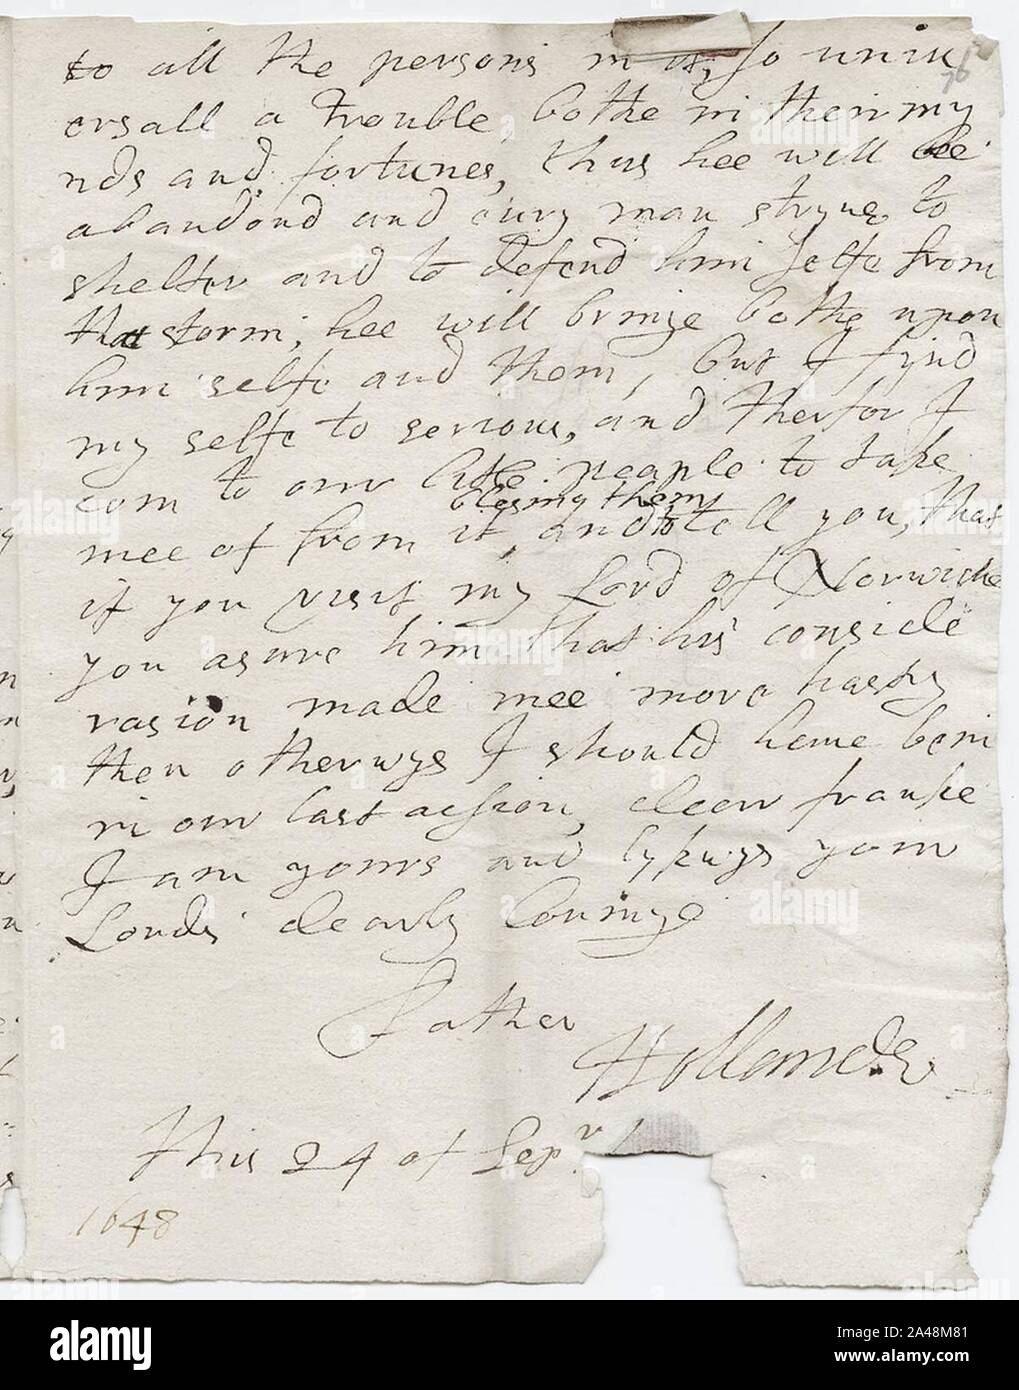 to all the persons in as, so univ
ersall a trouble bothe in their my
nds and fortunes, thus hee will bee
abandond and every man stryve to
shelter and to defend him selfe from
that storm, hee will bringe bothe upon
him selfe and them, but I fynd
my selfe to serious, and therfor I
com to our litle people to take
blesing them
mee of from it, and to tell you, that
if you visit my Lord of Norwiche
you asure him that his conside
rasion made mee more hasty
then otherwys I should have bein
in our last action, deer franke
I am yours and lykwys your
Lords dearly lovinge
Father
Hollande
this 24 of Sepr
1648
76
alamy
Image ID: 2A48M81
www.alamy.com